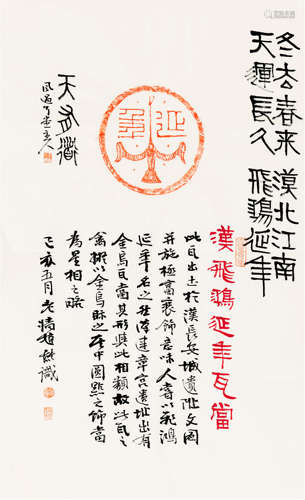 冬去春来 漠北江南
天運長久 飛鴻延年
延年
漢飛鴻延年瓦當
此瓦出土於漢長安城遺址文圖
并施極富裝飾意味人者以飛鴻
延年名之建章宮遺址出有
金烏瓦當其形與此相類故此瓦之
禽擬以金烏眎之在中圓點之飾當
為星相之
乙亥五月老墙趙熊識
风过耳堂主人